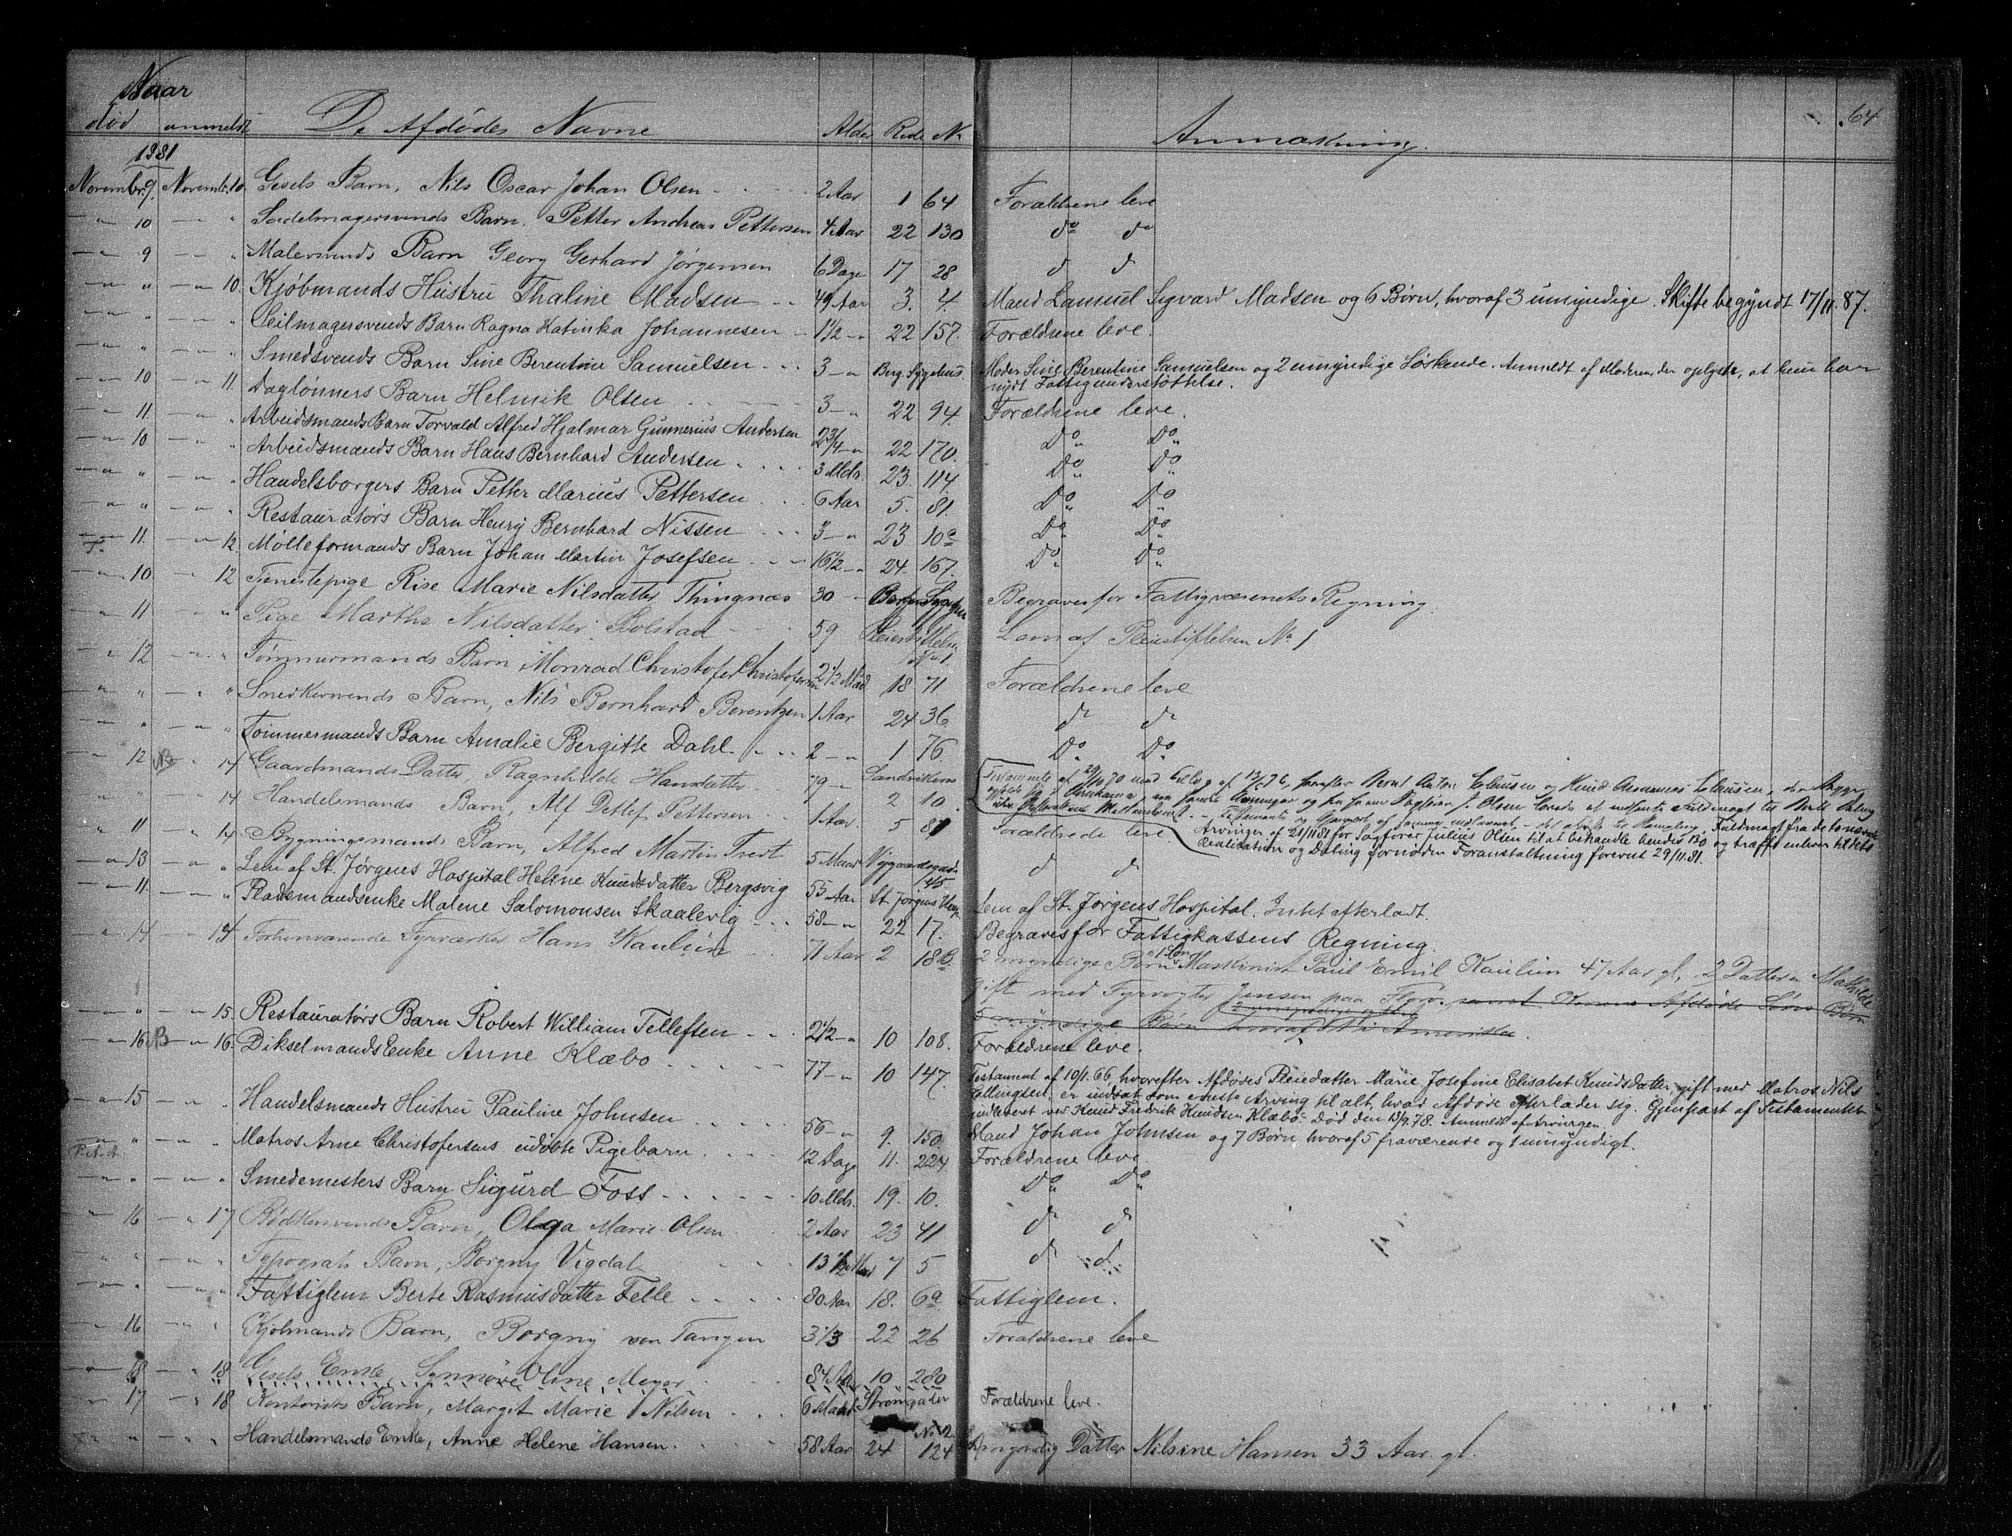 Naar
død anmeldt De Afdødes Navne Alder Rode No Anmærkning. 64
1881
Novembr. 9. Novembr. 10. Gesels Barn, Nils Oscar Johan Olsen 2 Aar 1 64 Forældrene leve
10 " Sadelmagersvends Barn, Petter Andreas Pettersen 4 Aar 22 130 do do
9 " Malersvends Barn Georg Gerhard Jørgensen 6 Dage 17 28 d d
" 10. Kjøbmands Hustru Thaline Madsen 49 Aar 3. 4. Mand Lamuel Sigvard Madsen og 6 Børn, hvoraf 3 umyndige. Skifte begyndt 17/11. 87.
" " Seilmagersvends Barn Ragna Katinka Johannesen 1 1/2 " 22 157. Forældrene leve.
" " Smedsvends Barn Sine Berentine Samuelsen 3 " Berg. Sygehus. Moder Sine Berentine Samuelsen og 2 umyndige Søskende. Anmeldt af Moderen, der oplyste, at hun har
nydt Fattigunderstøttelse.
10 11. Daglønners Barn Helmik Olsen 3 " 22 94. Forældrene leve.
11. " Arbeidsmands Barn Torvald Alfred Hjalmar Gunnerius Andersen 2 3/4 " 22 170. Do Do
10 " Arbeidsmands Barn Hans Bernhard Andersen 3 Mdr. 23. 114. Do Do
" " Handelsborgers Barn Petter Marius Pettersen 6 Aar 5. 81. Do Do
" " Restauratørs Barn Henry Bernhard Nissen 3 " 23 10a Do Do
11. 12 Mølleformands Barn Johan Martin Josefsen 16 1/2 " 24. 167. Do Do
10. 12 Tjenestepige Rise Marie Nilsdatter Thingnæs 30 Bergs Sygehus Begraves for Fattigvæsenets Regning.
11 " Pige Marthe Nilsdatter Solstad 59 Pleiestiftelsen No 1. Lem af Pleiestiftelsen No 1
12 " Tømmermands Barn Monrad Christofer Christofersen 2 1/2 Md 18 71 Forældrene leve
" " Snedkersvends Barn, Nils Bernhard Berentzen 1 Aar 24 36 do do
" " Tømmermands Barn Amalie Bergitte Dahl 2 " 1 76. Do Do
12 NB 14 Gaardmands Datter, Ragnhilde Hansdatter 79 " Sandvikens 2 10. Testamente af 29/10 70 med Tillæg af 13/ 76, hvorefter Bernt Anton Clausen og Knud Clausen,
14. Handelsmands Barn, Alf Detlef Pettersen 1 Aar. 5 81 Forældrede leve
Arvinger af 21/11 81 for Sagfører Julius Olsen til at behandle hendes Bo og træffe enhver til dets
Realisation og Deling fornøden Foranstaltning forevist 29/11. 81.
11 14 Bygningsmands Barn, Alfred Martin Trert 5 Maad Nygaardsgad. 145 d d
13 " Lem af St. Jørgens Hospital Helene Knudsdatter Bergsvig 55 Aar St Jørgens Hosp. Lem af St. Jørgens Hospital. Intet efterladt.
11. " Pladsmandsenke Malene Salomonsen Skaalevig 58 " 22 17. Begraves for Fattigkassens Regning.
14 14 Forhenværende Fyrværker Hans Kaulum 71 Aar 2 18b 2 myndige Børn 1 Søn Maskinist Paul Emil Kaulum 47 Aar gl, 2 Datter Mathilde
gift med Fyrvogter Jensen paa samt Afdøde Søns Børn
5 myndige Børn hvoraf Amerika.
" 15. Restauratørs Barn Robert William Tellefsen 2 1/2 " 10 108. Forældrene leve.
16 NB 16. Dikselmands Enke Anne Klæbo 77 " 10 147. Testament af 10/1. 66, hvorefter Afdødes Pleiedatter Marie Josefine Elisabet Knudsdatter, gift med Matros Nils
Ellingsen, er indsat som eneste Arving til alt, hvad Afdøde efterlader sig. Gjenpart af Testamentet
indleveret ved Knud Fredrik Knudsen Klæbos Død den 13/9. 78. Anmeldt af Arvingen.
15 " Handelsmands Hustru Pauline Johnsen 56 " 9. 150. Mand Johan Johnsen og 7 Børn, hvoraf 5 fraværende og 1 umyndigt.
" " Matros Arne Christofersens udøbte Pigebarn 12 Dage 11. 224 Forældrene leve.
" " Smedemesters Barn Sigurd Foss 10 Mdr. 19. 10. Do Do
16 17 Bødkersvends Barn, Olga Marie Olsen 2 Aar 23 41 d d
" " Typografs Barn, Borgny Vigdal 13 1/2 Mad 7 5 d d
" " Fattiglem Berte Rasmusdatter Felle 80 Aar 18. 6a Fattiglem.
16 " Kjøbmands Barn, Borgny von Tangen 3 1/3 22 26 Forældrene leve
18 18 Gesels Enke Synnøve Oline Meyer 84 Aar 10 280
17 18 Kontorists Barn, Margit Marie Nilsen 6 Maad Strømgaden No 12 Forældrene leve.
" " Handelsmands Enke, Anne Helene Hansen 58 Aar 24 124 Datter Nilsine Hansen 33 Aar gl.